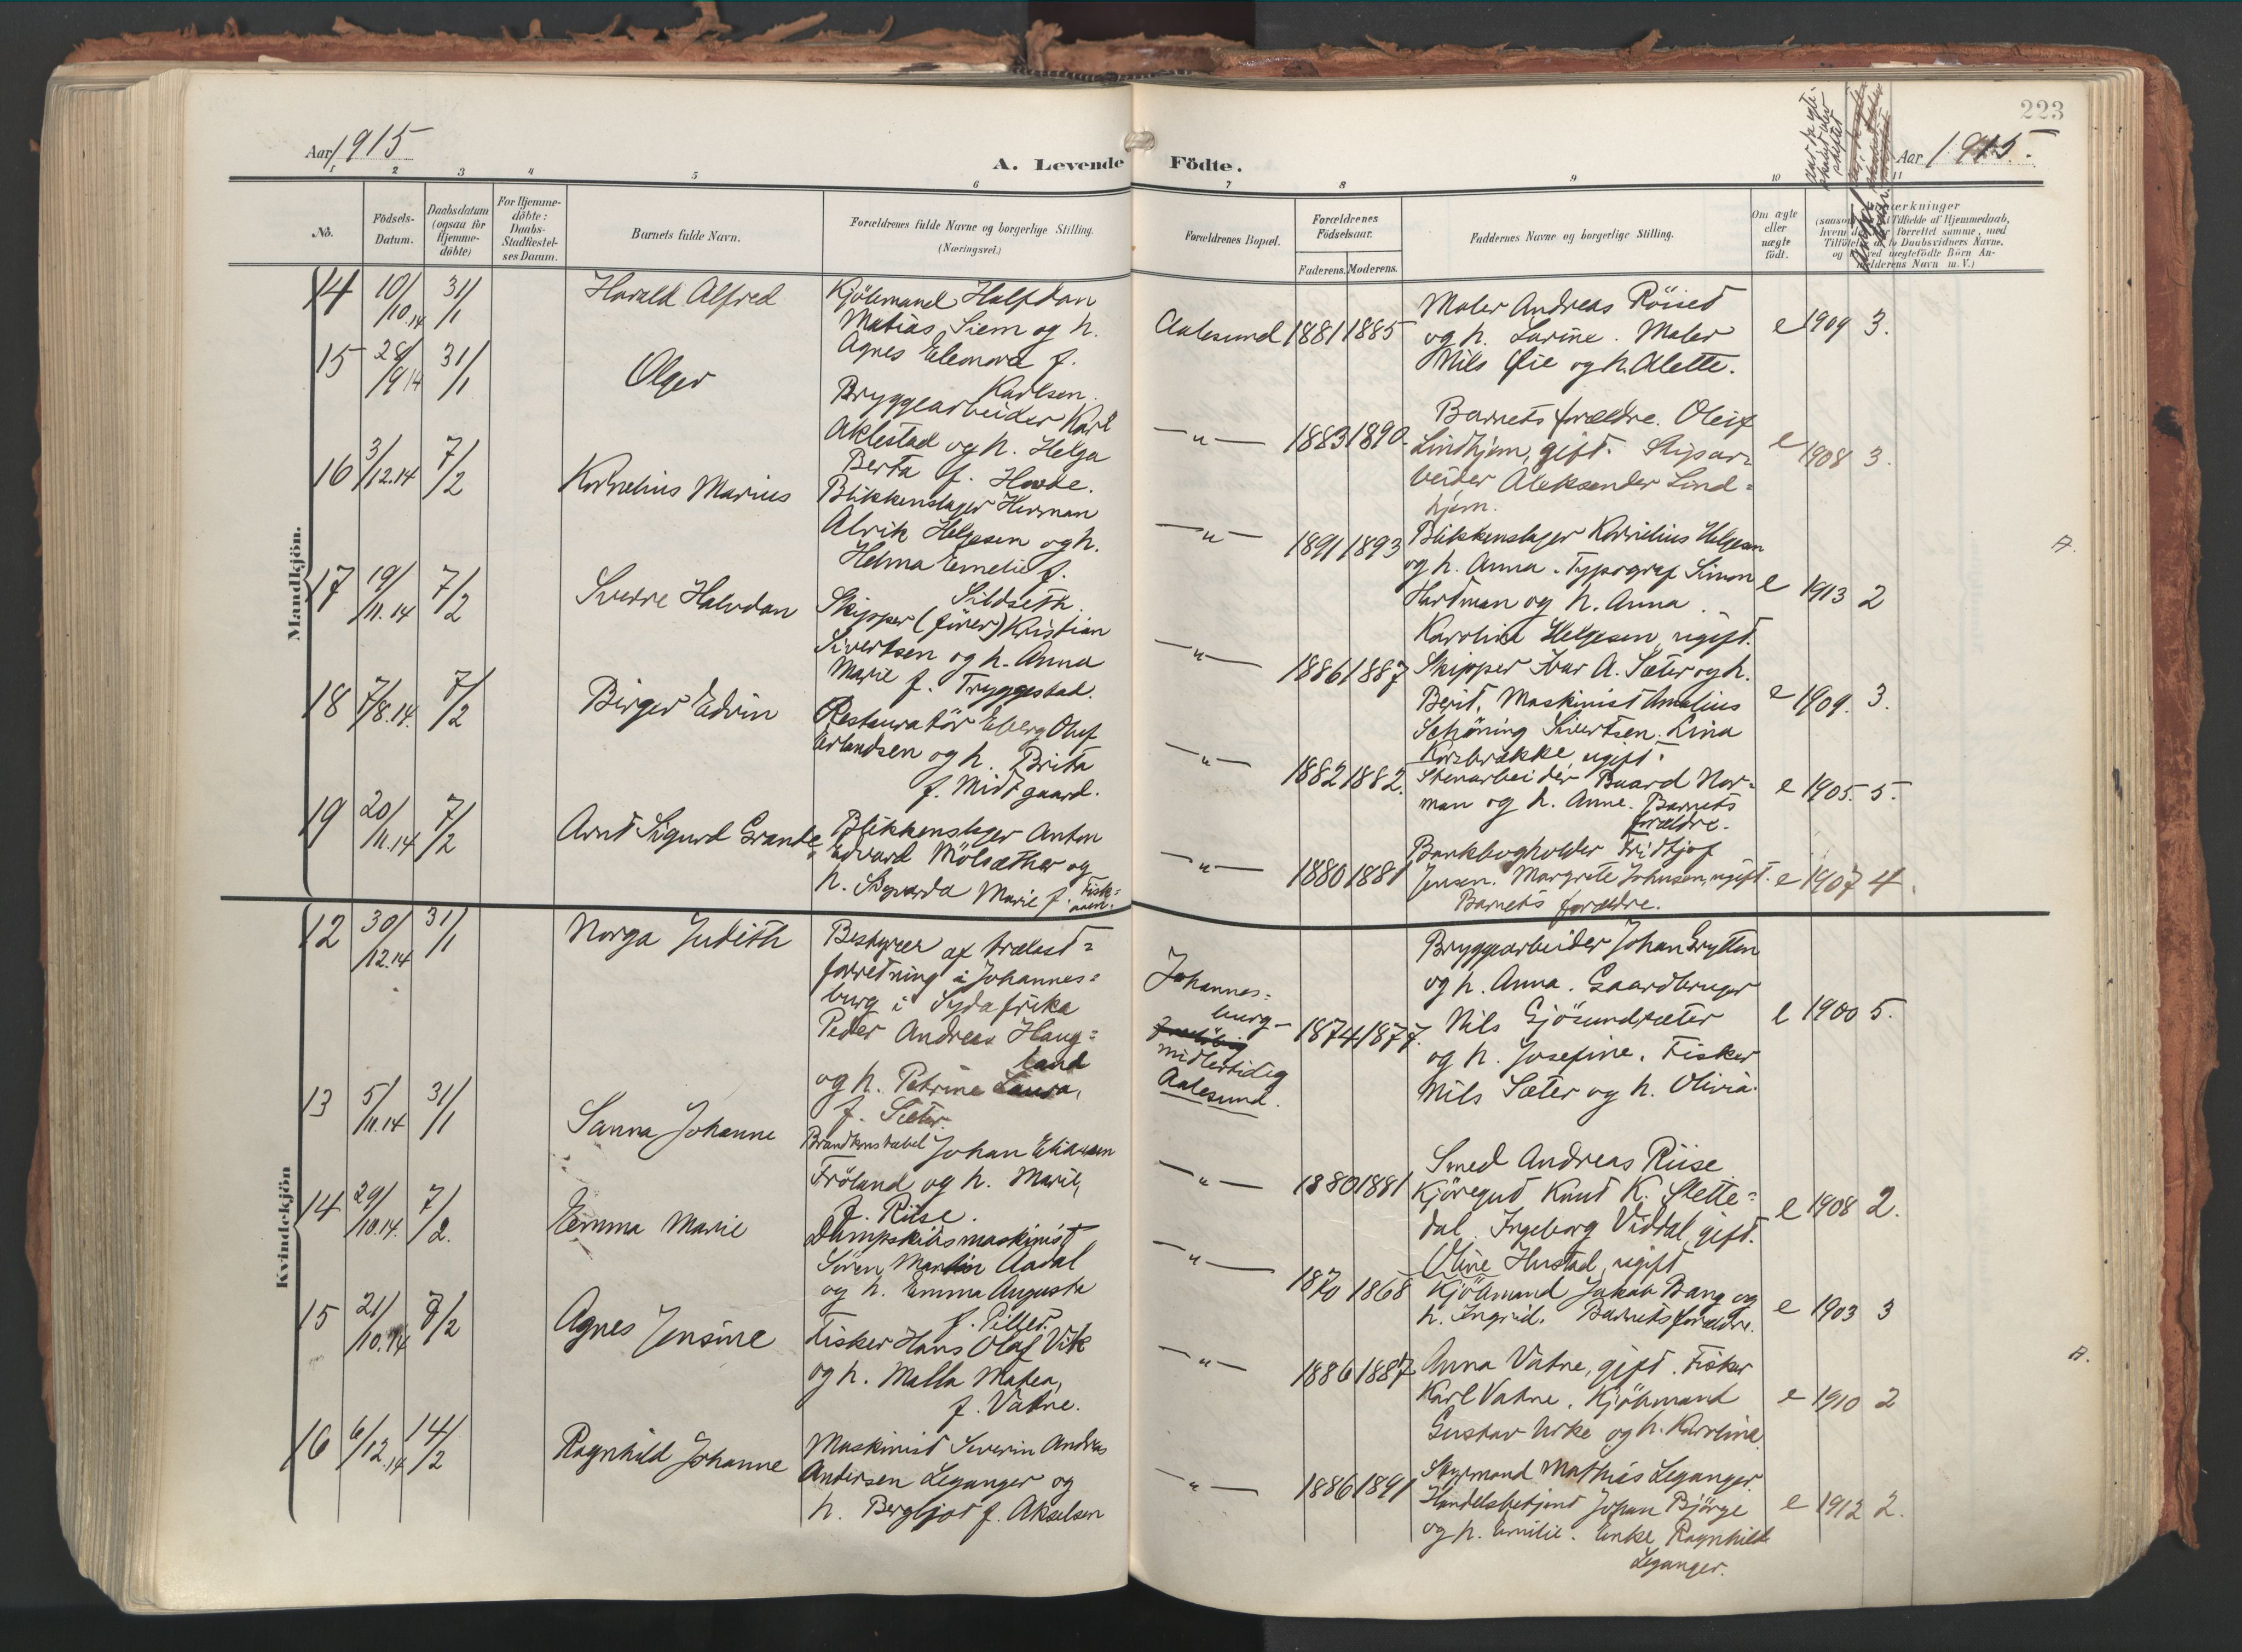 Aar 1915
A. Levende Födte.
Aar 1915.
223
1 2 3 4 5 6 7 8 9 10 11
No.
Födsels-
Datum.
Daabsdatum
(ogsaa for
Hjemme-
döbte)
For Hjemme-
döbte:
Daabs-
Stadfæstel-
ses Datum.
Barnets fulde Navn.
Forældrenes fulde Navne og borgerlige Stilling.
(Næringsvei.)
Forældrenes Bopæl.
Forældrenes
Födselsaar.
Faderens. Moderens.
Faddernes Navne og borgerlige Stilling.
Om ægte
eller
uægte
födt.
Mandkjön.
14 10/10 14 31/1 Harald Alfred
Kjöbmand Halfdan
Matias Siem og h.
Agnes Eleonora f.
Karlsen.
Aalesund 1881 1885
Maler Andreas Röised
og h. Larine. Maler
Nils Øie og h. Alette.
e 1909 3.
15 28/9 14 31/1 Olger
Bryggearbeider Karl
Aklestad og h. Helga
Berta f. Hovde.
—"— 1883 1890.
Barnets forældre. Oleif
Lindhjem, gift. Skipar=
beider Aleksander Lind=
hjem.
e 1908 3.
16 3/12.14 7/2 Kornelius Marius
Blikkenslager Herman
Alrik Helgesen og h.
Helma Emelie f.
Sildseth.
—"— 1891 1893
Blikkenslager Kornelius Helgesen
og h. Anna. Typograf Simon
Hartman og h. Anna.
Karolina Helgesen, ugift.
e 1913 2
17 19/11.14 7/2 Sverre Halvdan
Skipper (förer) Kristian
Sivertsen og h. Anna
Marie f. Tryggestad.
—"— 1886 1887
Skipper Ivar A. Sæter og h.
Berit. Maskinist Amalius
Schöning Sivertsen. Lina
Korsbrække, ugift.
e 1909. 3.
18 7/8.14. 7/2 Birger Edvin
Restauratör Eberg Oluf
Erlandsen og h. Brita
f. Midtgaard.
—"— 1882 1882.
Stenarbeider Baard Nor=
man og h. Anne. Barnets
forældre.
e 1905. 5.
19 20/11.14 7/2 Arnt Sigurd Grande
Blikkenslager Anton
Edvard Mölsæther og
h. Sigvarda Marie f.
—"— 1880 1881
Bankbogholder Fridtjof
Jensen. Margrete Johnsen, ugift.
Barnets forældre.
e 1907 4.
Kvindekjön
12 30/12.14 31/1 Norga Judith
Bestyrer af trælast=
forretning i Johannes=
burg i Sydafrika
Peder Andreas Haug=
land
og h. Petrine Laura,
f. Sæter.
Johannes=
burg—
midlertidig
Aalesund.
1874 1877.
Bryggearbeider Johan Grytten
og h. Anna. Gaardbruger
Nils Gjösundsæter
og h. Josefine. Fisker
Nils Sæter og h. Olivia.
e 1900 5.
13 5/11.14 31/1 Sanna Johanne
Brandkonstabel Johan Eliassen
Fröland og h. Marie,
f. Riise.
—"— 1880 1881
Smed Andreas Riise
Kjöregut Knut K. Slette=
dal. Ingeborg Viddal, gift.
Oline Hustad, ugift
e 1908 2.
14 29/10.14. 7/2. Emma Marie
Dampskibsmaskinist
Sören Martin Aadal
og h. Emma Augusta
—"— 1870 1868
Kjöbmand Jakob Bang og
h. Ingrid. Barnets forældre.
e 1903 3
15 21/10.14 7/2 Agnes Jensine
Fisker Hans Olaf Vik
og h. Malla Matea,
f. Vatne.
—"— 1886 1887
Anna Vatne, gift. Fisker
Karl Vatne. Kjöbmand
Gustav Urke og h. Karolina.
e 1910 2
16 6/12.14 14/2 Ragnhild Johanne
Maskinist Severin Andreas
Andersen Leganger og
h. Bergljot f. Akselsen
—"— 1886 1891
Styrmand Mathias Leganger.
Handelsbetjent Johan Bjørge
og h. Emilie. Enke Ragnhild
Leganger.
e 1912 2.